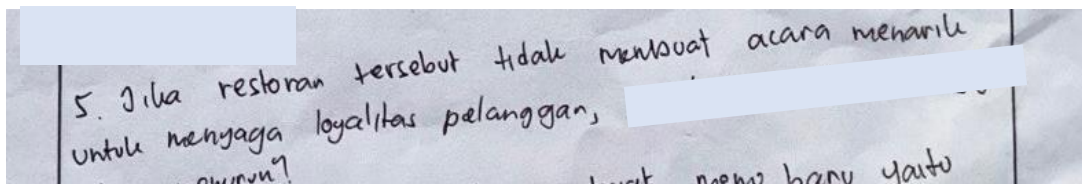 5. Jika restoran tersebut tidak membuat acara menarik
untuk menyaga loyalitas pelanggan,
menu baru yaitu